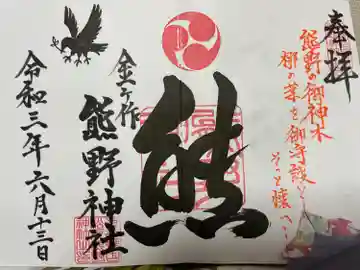 奉拝
熊野の御神木
梛の葉を御守護と
そっと懐へ
熊
金ヶ作
熊野神社
令和三年六月十三日